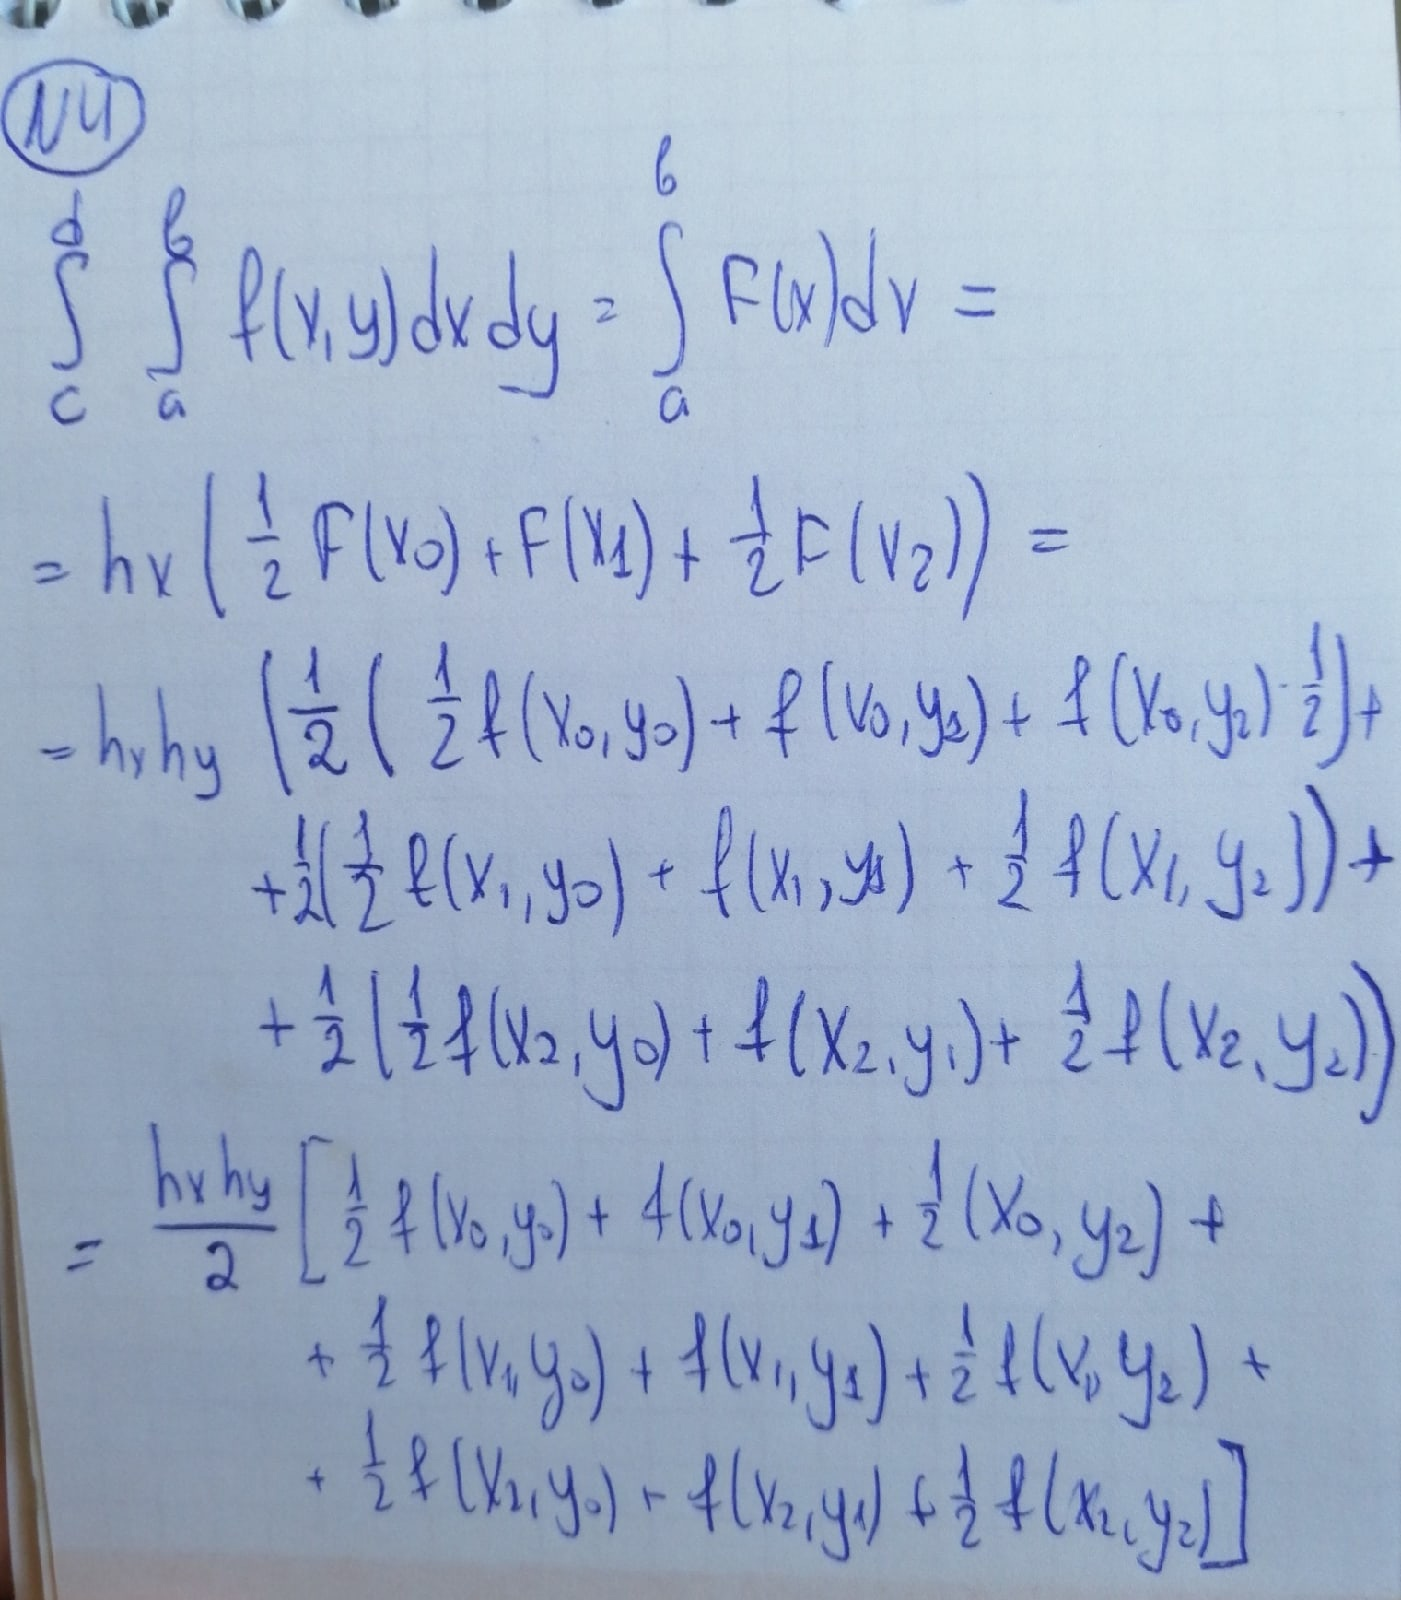 N4
∫_c^d ∫_a^b f(x,y)dxdy = ∫_a^b F(x)dx =
= hx ( 1/2 F(x0) + F(x1) + 1/2 F(x2) ) =
= hxhy ( 1/2 ( 1/2 f(x0,y0) + f(x0,y1) + f(x0,y2)·1/2 ) +
+ 1/2 ( 1/2 f(x1,y0) + f(x1,y1) + 1/2 f(x1,y2) ) +
+ 1/2 ( 1/2 f(x2,y0) + f(x2,y1) + 1/2 f(x2,y2) ) )
= hxhy/2 [ 1/2 f(x0,y0) + f(x0,y1) + 1/2 (x0,y2) +
+ 1/2 f(x1,y0) + f(x1,y1) + 1/2 f(x1,y2) +
+ 1/2 f(x2,y0) + f(x2,y1) + 1/2 f(x2,y2) ]